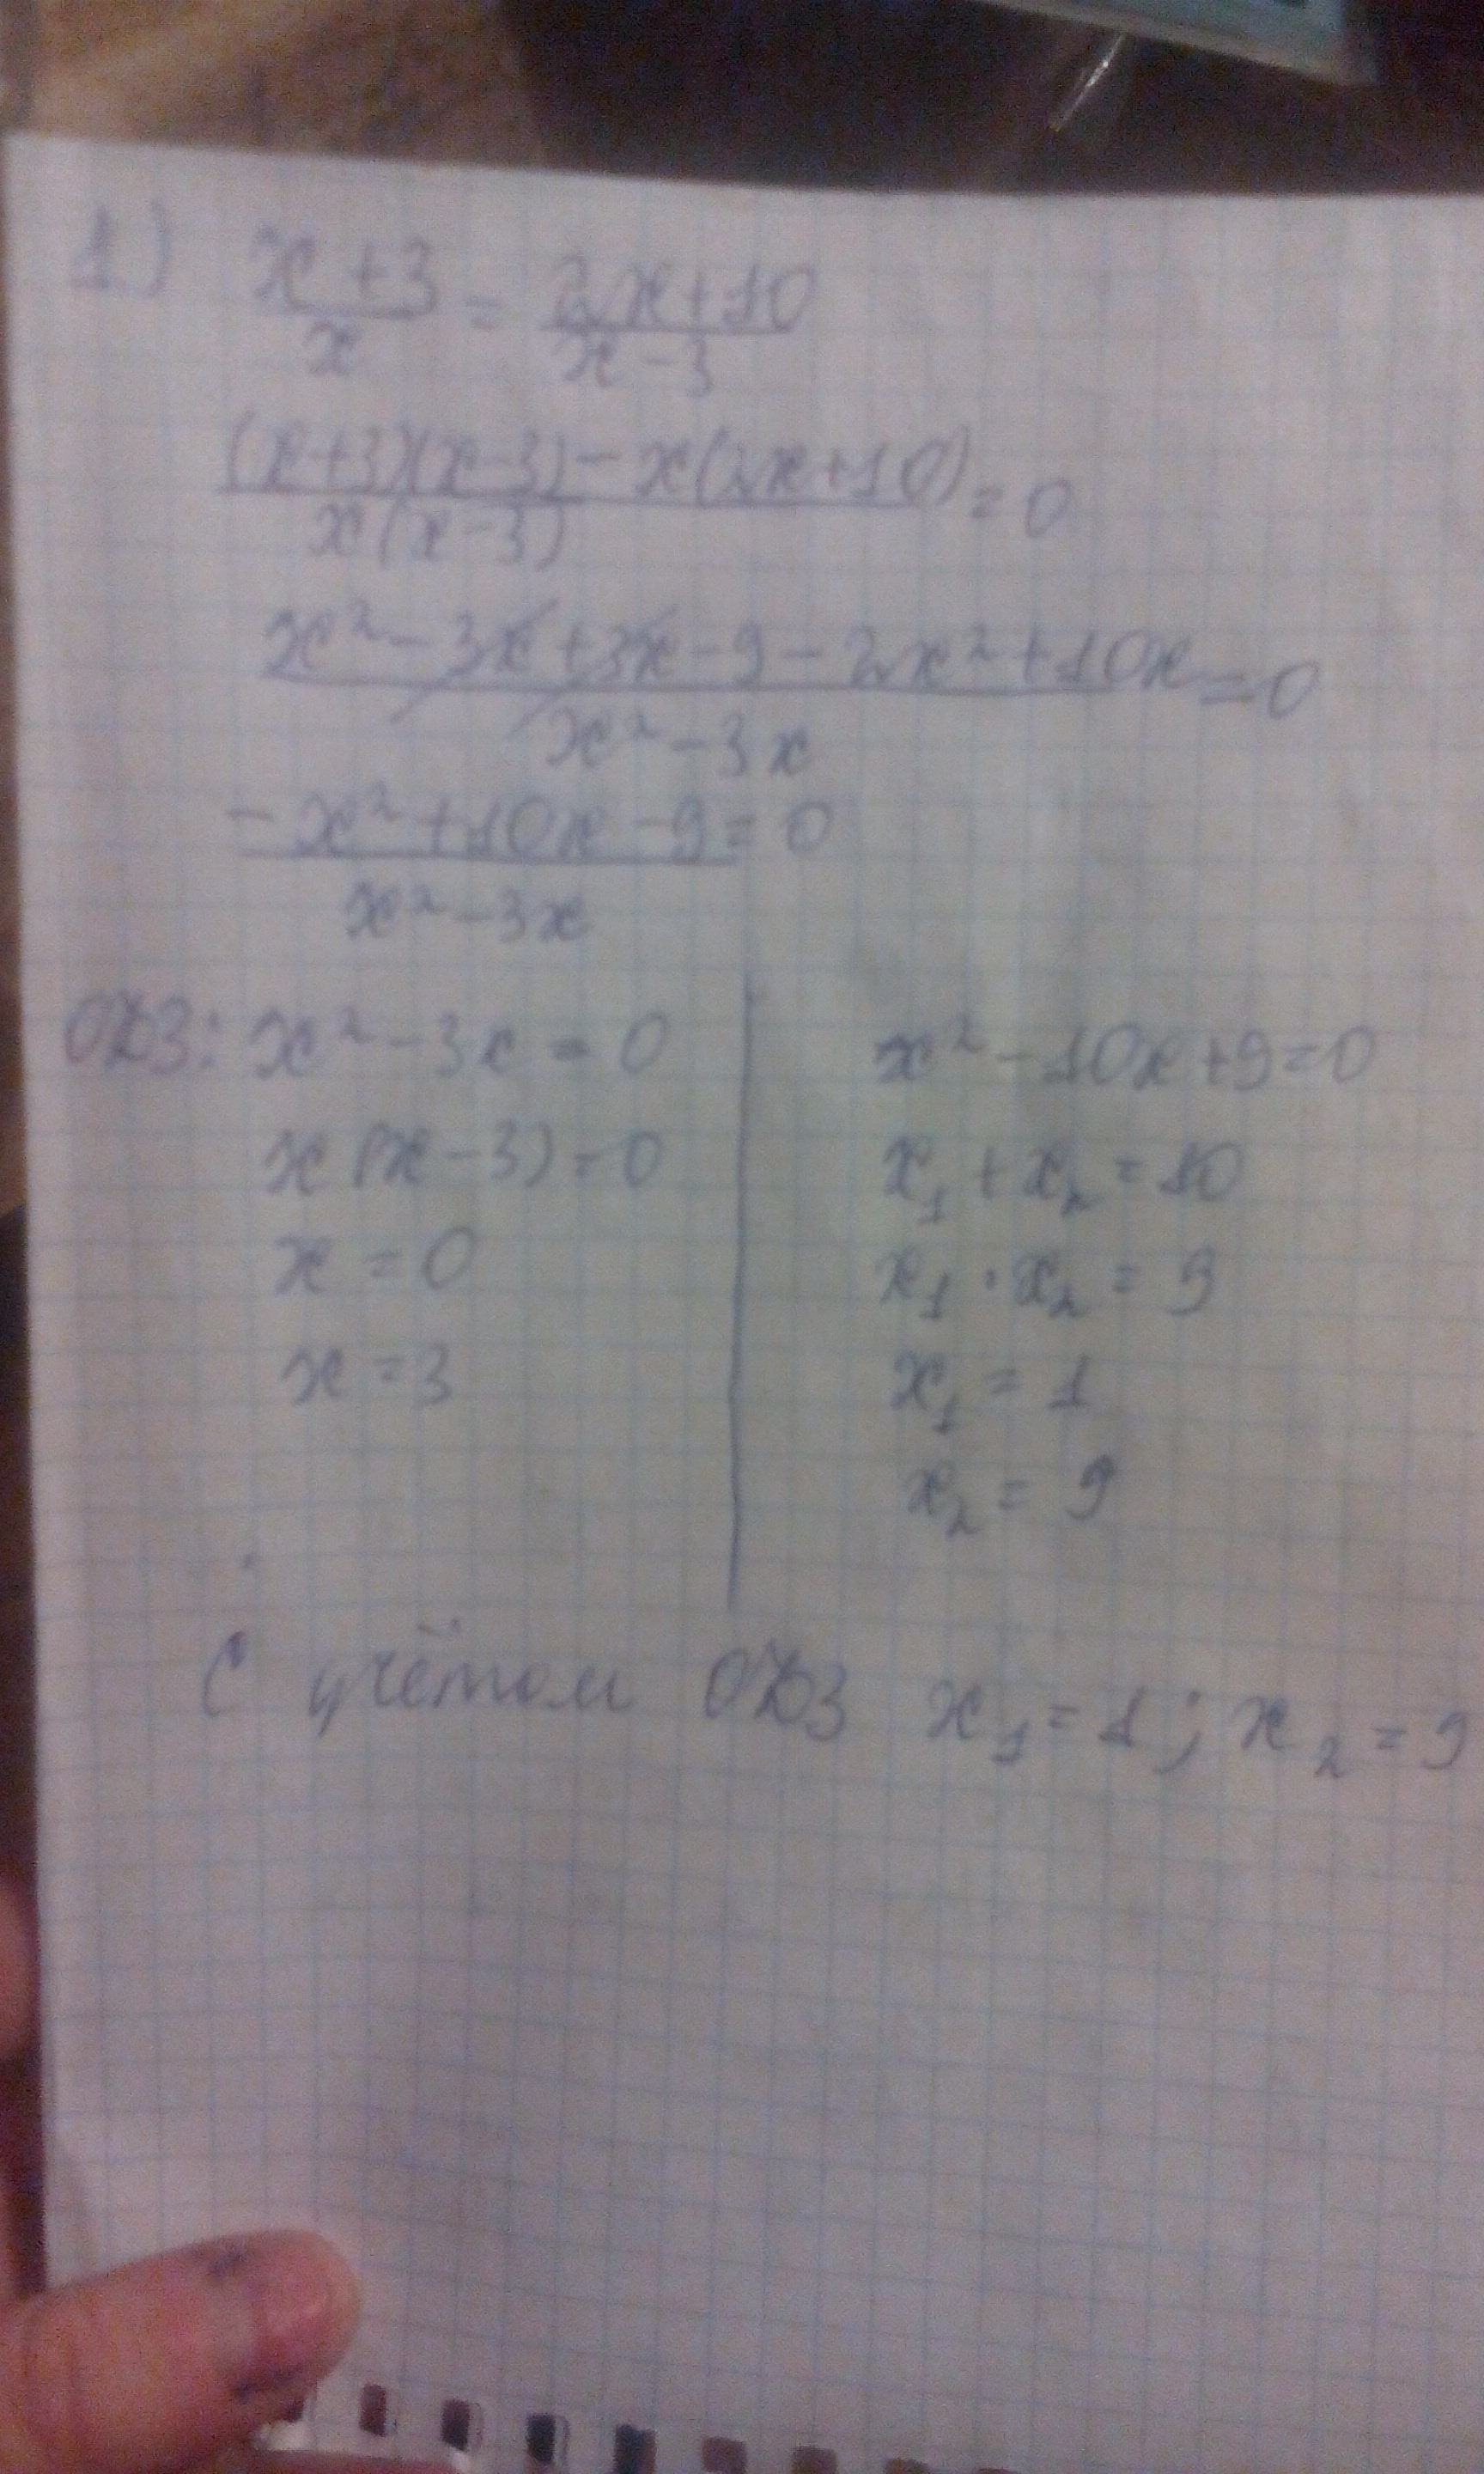 1) (x+3)/x = (2x+10)/(x-3)
((x+3)(x-3) - x(2x+10))/(x(x-3)) = 0
(x² - 3x + 3x - 9 - 2x² + 10x)/(x² - 3x) = 0
(-x² + 10x - 9)/(x² - 3x) = 0
ОДЗ: x² - 3x = 0
x(x-3) = 0
x = 0
x = 3
x² - 10x + 9 = 0
x₁ + x₂ = 10
x₁ · x₂ = 9
x₁ = 1
x₂ = 9
С учётом ОДЗ x₁ = 1; x₂ = 9